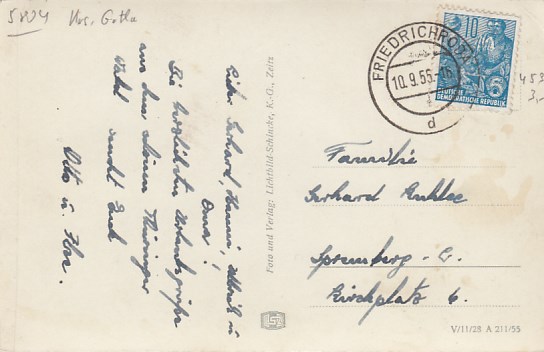 5804 Krs. Gotha
Lieber Gerhard, Hanni, Ullrich u.
Oma!
Die herzlichsten Urlaubsgrüße
aus dem schönen Thüringer
Wald sendet Euch
Otto u. Ilse.
Foto und Verlag: Lichtbild-Schincke, K.-G., Zeitz
FRIEDRICHRODA
10.9.55
d
10
DEUTSCHE
DEMOCRATISCHE REPUBLIK
453
3,-
Familie
Gerhard
Spremberg -
Kirchplatz 6.
V/11/28 A 211/55